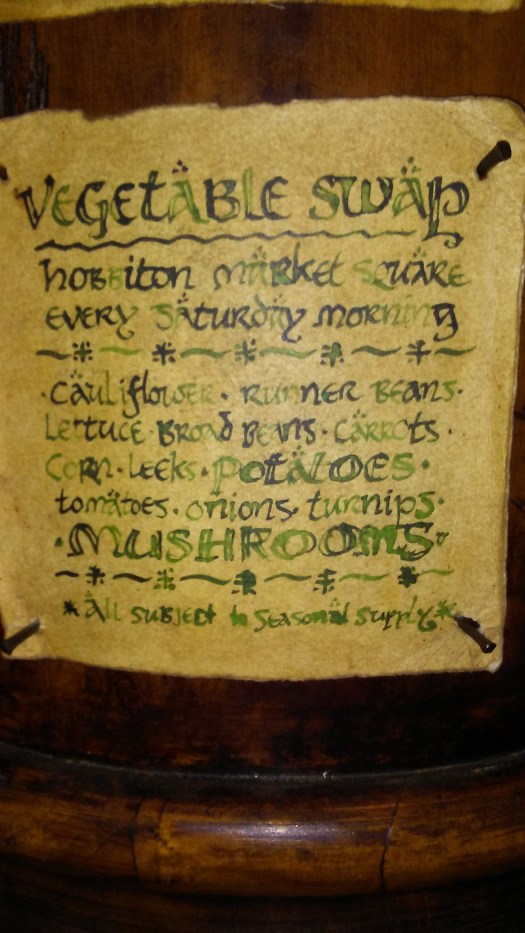 VEGETABLE SWAP
hobbiton market square
every Saturday morning
·Cauliflower · runner beans·
Lettuce · Broad Beans · Carrots ·
Corn · Leeks · Potatoes ·
tomatoes · onions · turnips ·
·MUSHROOMS·
*All subject to Seasonal Supply*